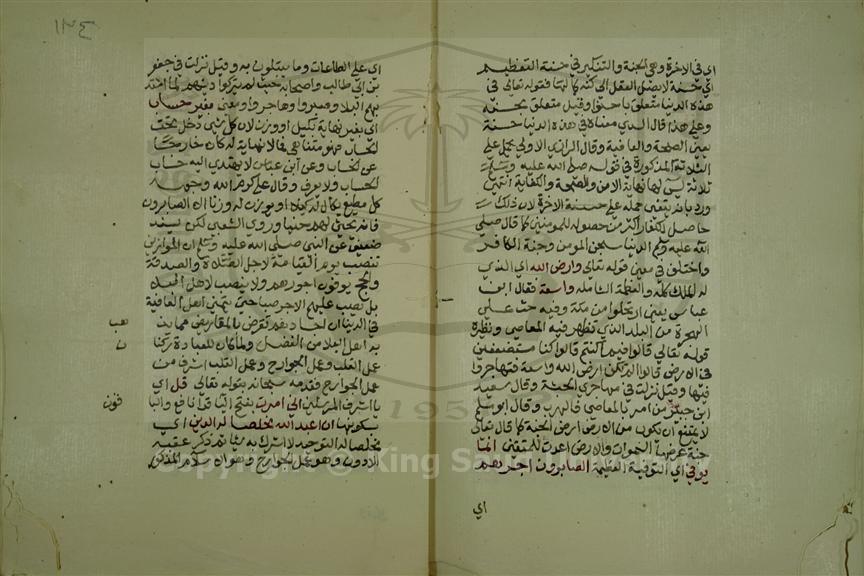 اي في الاخرة وهي الجنة والتنكير في حسنة للتعظيم
اي حسنة لا يصل العقل الى كنه كمالها فقوله تعالى في
هذه الدنيا متعلق باحسنوا وقيل متعلق بحسنه
وعلى هذا قال السدي معناه في هذه الدنيا حسنة
يعني الصحة والعافية وقال الرازي الاولى الحمل على
الثلاثة المذكورة في قوله صلى الله عليه وسلم
ثلاثة ليس لها نهاية الامن والصحة والكفاية انتهى
ورد بانه يتعين حمله على حسنة الاخرة لان ذلك
حاصل للكفار اكثر من حصوله للمومنين كما قال صلى
الله عليه وسلم الدنيا سجن المومن وجنة الكافر
واختلف في معنى قوله تعالى وارض الله اي الذي
له الملك كله والعظمة الكاملة واسعة فقال ابن
عباس يعني ارتحلوا من مكة وفيه حث على
الهجرة من البلد الذي تظهر فيه المعاصي ونظيره
قوله تعالى قالوا فيم كنتم قالوا كنا مستضعفين
في الارض قالوا الم تكن ارض الله واسعة فتهاجروا
فيها وقيل نزلت في مهاجري الحبشة وقال سعيد
ابن جبير من امر بالمعاصي فليهرب وقال ابو مسلم
لا يمتنع ان يكون من الارض ارض الجنة كما قال تعالى
جنة عرضها السموات والارض اعدت للمتقين انما
يوفى اي التوفية العظيمة الصابرون اجرهم
اي
١٣٤
اي على الطاعات وما يبتلون به وقيل نزلت في جعفر
بن ابي طالب واصحابه حيث لم يتركوا دينهم لما اشتد
بهم البلاء وصبروا وهاجروا ومعنى بغير حساب
اي بغير نهاية بكيل او وزن لان كل شيء دخل تحت
الحساب فهو متناهي فما لا نهاية له كان خارجا
عن الحساب وعن ابن عباس لا يهتدي اليه حساب
الحساب ولا يعرف وقال علي كرم الله وجهه
كل مطيع يكال له كيلا او يوزن له وزنا الا الصابرون
فانه يحثى لهم حثيا وروى الشعبي لكن بسند
ضعيف عن النبي صلى الله عليه وسلم ان الموازين
تنصب يوم القيامة لاجل الصلاة والصدقة
والحج يوفون اجورهم ولا ينصب لاهل البلاء
بل يصب عليهم الاجر صبا حتى يتمنى اهل العافية
في الدنيا ان اجسادهم تقرض بالمقاريض مما يذ
هب
به اهل البلاء من الفضل ولما كان للعبادة ركنا
ن
عمل القلب وعمل الجوارح وعمل القلب اشرف من
عمل الجوارح فقدمه سبحانه بقوله تعالى قل اي
يا اشرف المرسلين اني امرت بفتح اليا قرا نافع والبا
قون
بسكونها ان اعبد الله مخلصا له الدين اي
مخلصا له التوحيد لا اشرك به شيئا ثم ذكر عقبه
الادون وهو عمل الجوارح وهو الاسلام المذكور
Copyright © King Saud University
1957